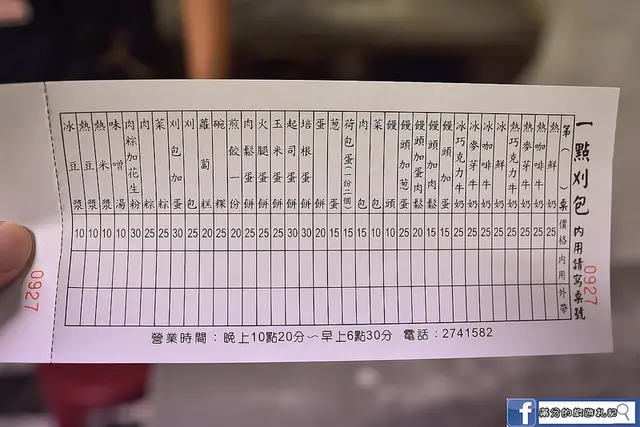 一點刈包 內用請寫桌號
0927
第( )桌 價格 內用 外帶
熱鮮奶 25
熱咖啡牛奶 25
熱麥芽牛奶 25
熱巧克力牛奶 25
冰鮮奶 25
冰咖啡牛奶 25
冰麥芽牛奶 25
冰巧克力牛奶 25
饅頭加蛋 15
饅頭加肉鬆 15
饅頭加蛋肉鬆 20
饅頭加蔥蛋 25
饅頭 10
菜包 10
肉包 15
荷包蛋(一份二個) 15
蔥蛋 15
蛋餅 20
培根蛋餅 30
起司蛋餅 30
玉米蛋餅 25
火腿蛋餅 25
肉鬆蛋餅 25
煎餃一份 20
碗粿 25
蘿蔔糕 20
刈包 25
刈包加蛋 30
菜粽 25
肉粽 25
肉粽加花生粉 30
味噌湯 10
熱米漿 10
熱豆漿 10
冰豆漿 10
營業時間：晚上10點20分～早上6點30分 電話：2741582
0927
滿分的旅遊札記